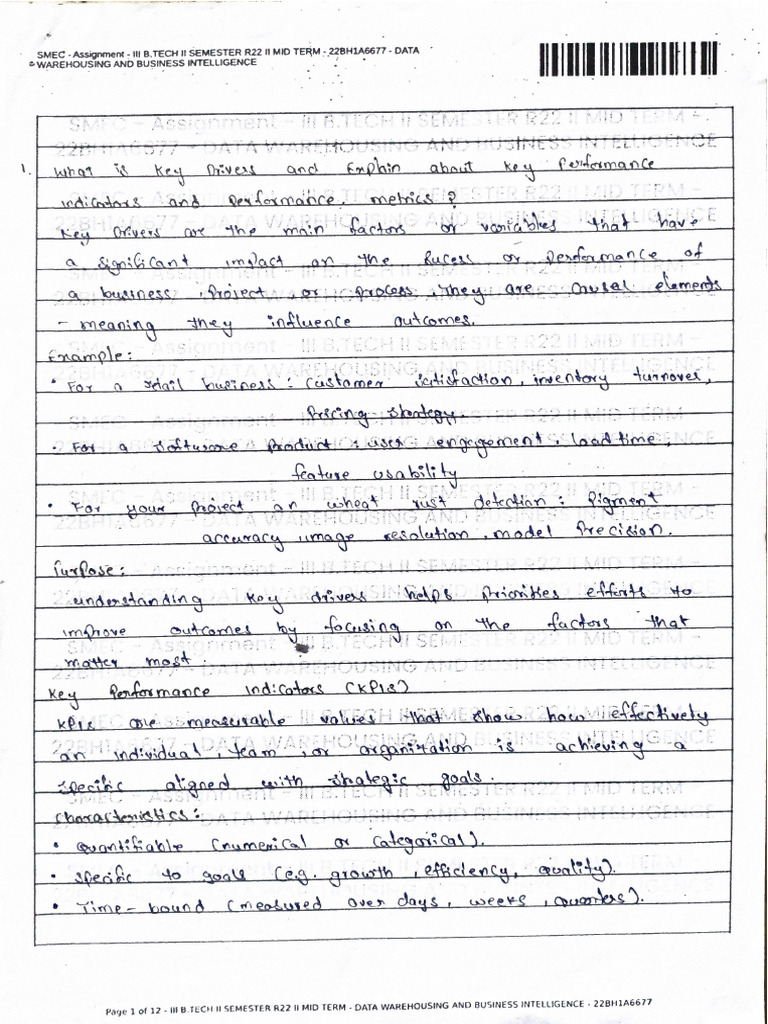 SMEC - Assignment - III B.TECH II SEMESTER R22 II MID TERM - 22BH1A6677 - DATA
WAREHOUSING AND BUSINESS INTELLIGENCE
SMEC - Assignment - III B.TECH II SEMESTER R22 II MID TERM -
22BH1A6677 - DATA WAREHOUSING AND BUSINESS INTELLIGENCE
1. What is Key Drivers and Explain about Key Performance
indicators and performance metrics?
Key Drivers are the main factors or variables that have
a significant impact on the Sucess or performance of
a business, Project, or process, They are causal elements
- meaning they influence outcomes.
Example:
• For a retail business: Customer satisfaction, inventory turnover,
Pricing strategy
• For a software product: user engagement, load time,
feature usability
• For your project, an wheat rust detection: Pigment
accuracy, image resolution, model Precision.
Purpose:
understanding key drivers helps priorities efforts to
improve outcomes by focusing on the factors that
matter most.
Key Performance Indicators (KPIs)
KPIs are measurable values that show how effectively
an individual, team, or organization is achieving a
specific aligned with strategic goals.
Characteristics:
• Quantifiable (numerical or categorical).
• Specific to goals (e.g. growth, efficiency, quality).
• Time-bound (measured over days, weeks, quarters).
Page 1 of 12 - III B.TECH II SEMESTER R22 II MID TERM - DATA WAREHOUSING AND BUSINESS INTELLIGENCE - 22BH1A6677